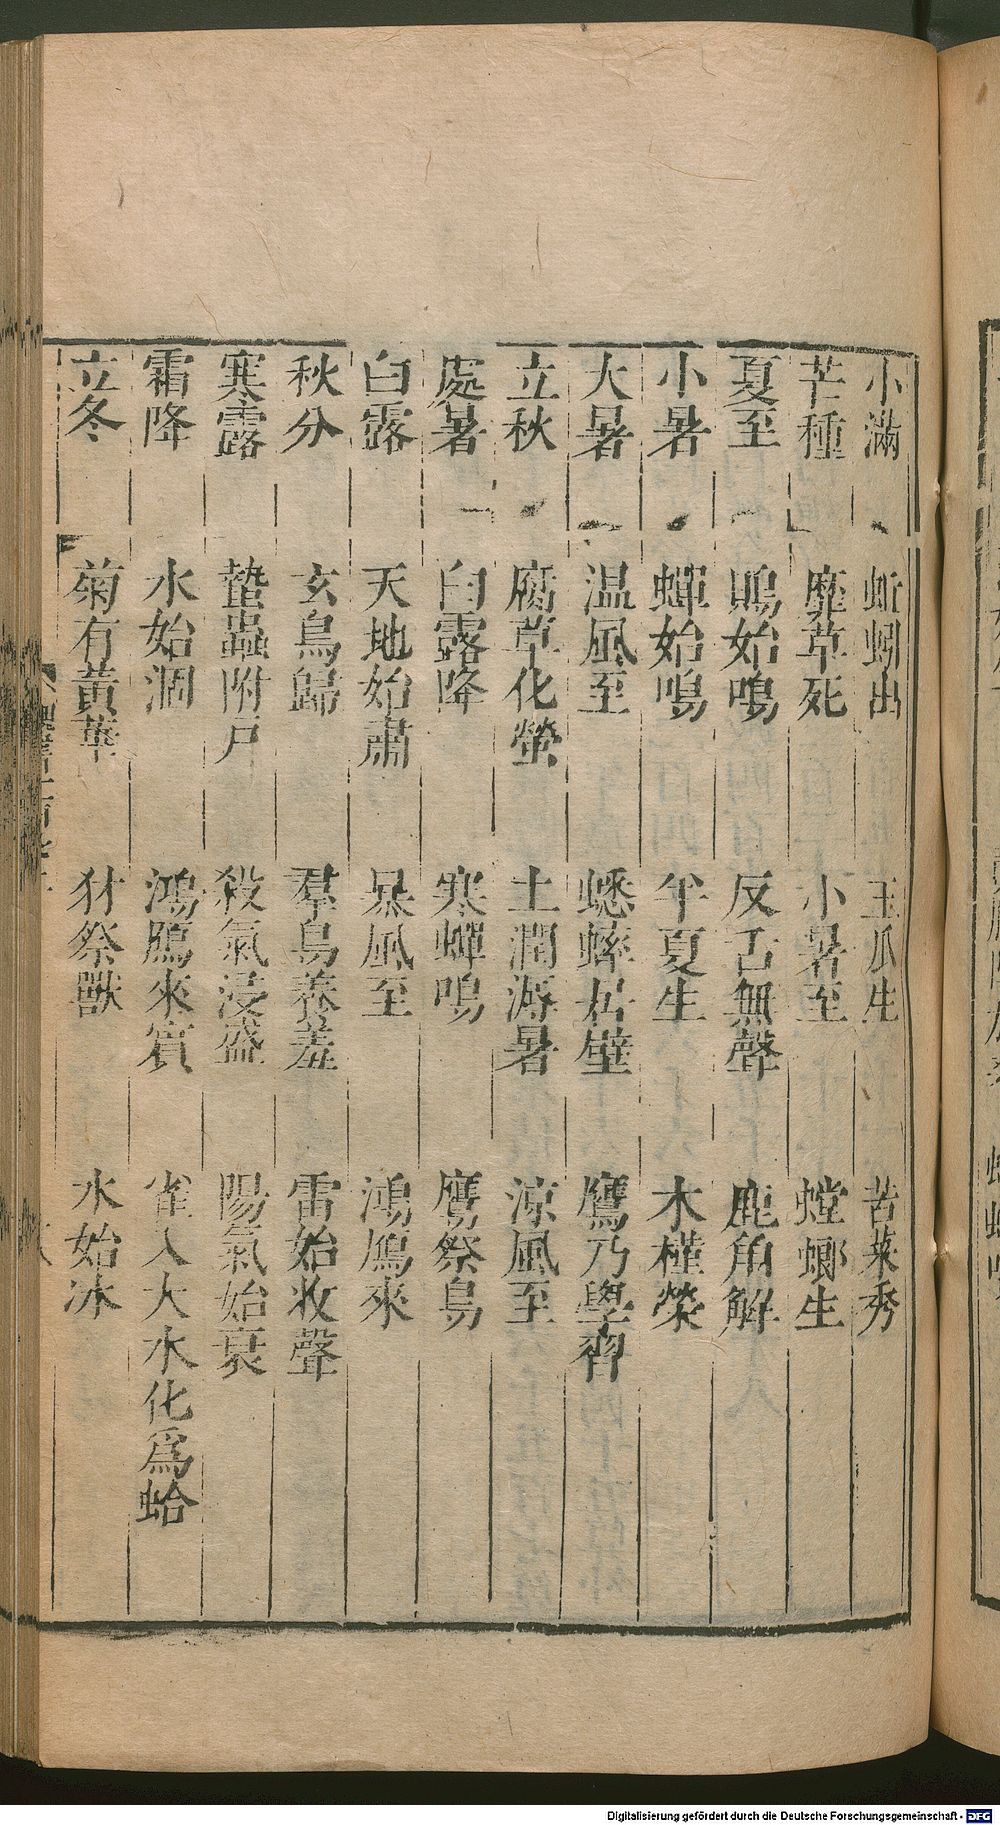 小滿 蚯蚓出 王瓜生 苦菜秀
芒種 靡草死 小暑至 螳螂生
夏至 鵙始鳴 反舌無聲 鹿角解
小暑 蟬始鳴 半夏生 木槿榮
大暑 温風至 蟋蟀居壁 鷹乃學習
立秋 腐草化螢 土潤溽暑 涼風至
處暑 白露降 寒蟬鳴 鷹祭鳥
白露 天地始肅 暴風至 鴻鴈來
秋分 玄鳥歸 羣鳥養羞 雷始收聲
寒露 蟄蟲附戶 殺氣浸盛 陽氣始衰
霜降 水始涸 鴻鴈來賓 雀入大水化爲蛤
立冬 菊有黃華 豺祭獸 水始冰
Digitalisierung gefördert durch die Deutsche Forschungsgemeinschaft - DFG